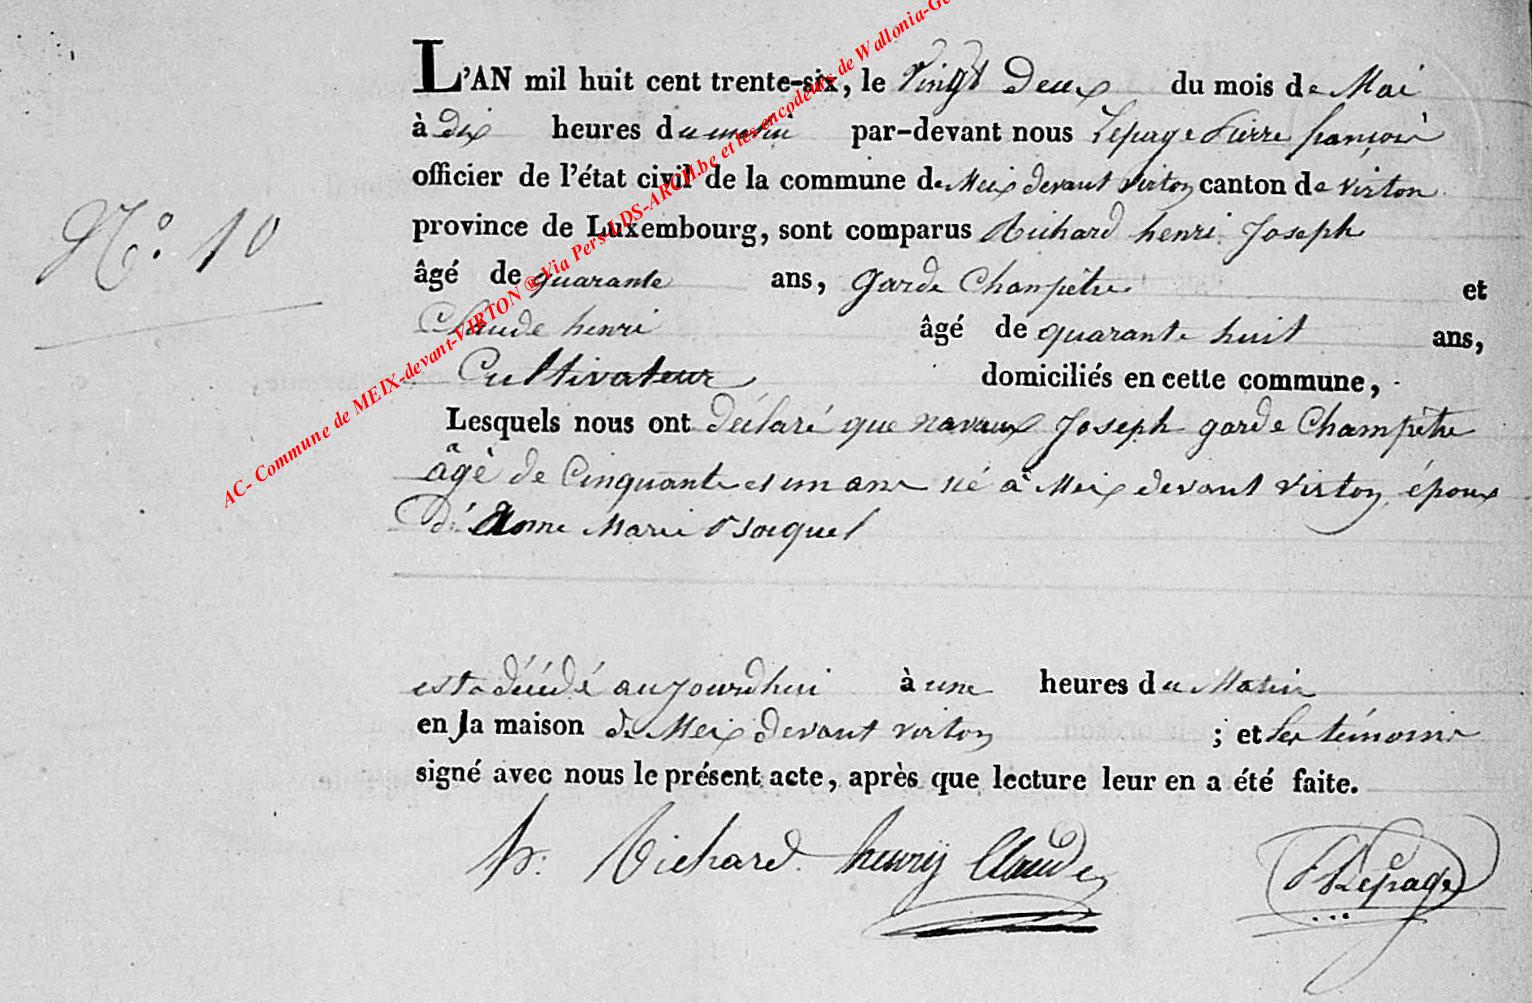 L'AN mil huit cent trente-six, le Vingt Deux du mois de Mai
à dix heures du matin par-devant nous Lepage Pierre françois
officier de l'état civil de la commune de Meix devant virton canton de virton
N.° 10
province de Luxembourg, sont comparus Richard henri Joseph
âgé de quarante ans, garde Champêtre et
Claude henri âgé de quarante huit ans,
Cultivateur domiciliés en cette commune,
Lesquels nous ont déclaré que navaux Joseph garde Champêtre
âgé de Cinquante et un ans né à Meix devant virton, époux
D'Anne Marie
est décédé aujourdhui à une heures du Matin
en la maison de Meix devant virton ; et les témoins
signé avec nous le présent acte, après que lecture leur en a été faite.
h: Richard henry Claude Lepage
AC- Commune de MEIX-devant-VIRTON ® Via Pers-LDS-ARCH.be et les encodeurs de Wallonia-Ge